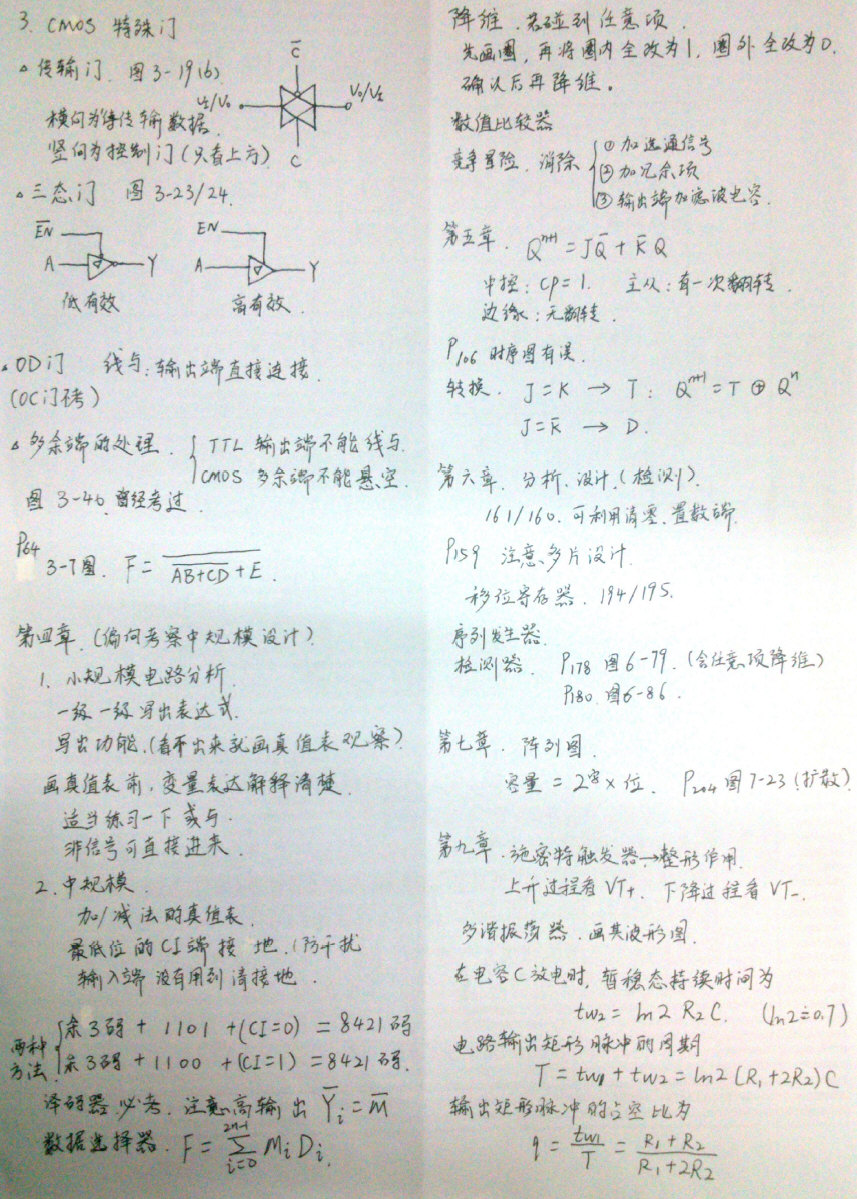 3. CMOS 特殊门
△ 传输门. 图3-19(b)
C̅
VI/VO
VO/VI
横向为待传输数据.
竖向为控制门(只看上方)
C
△ 三态门 图 3-23/24.
E̅N̅
EN
A
Y
A
Y
低有效
高有效.
△ OD门 线与: 输出端直接连接.
(OC门 )
△ 多余端的处理. { TTL 输出端不能线与.
CMOS 多余端不能悬空.
图 3-40 曾经考过.
P64
3-7图. F̅ = \overline{\overline{AB+CD}+E}.
第四章. (偏向考察中规模设计)
1. 小规模电路分析.
一级一级写出表达式.
写出功能.(看不出来就画真值表观察)
画真值表前, 变量表达解释清楚.
适当练习一下 或与.
非信号可直接进来.
2. 中规模.
加/减法的真值表.
最低位的CI端接 地.(防干扰
输入端没有用到请接地.
两种方法. { 余3码 + 1101 +(CI=0) = 8421码
余3码 + 1100 +(CI=1) = 8421码.
译码器必考. 注意高输出 Y̅i = m̅
数据选择器. F = \sum_{i=0}^{2^n-1} Mi Di.
降维. 若碰到任意项.
先画圈, 再将圈内全改为1, 圈外全改为0.
确认后再降维。
数值比较器
竞争冒险. 消除 { ① 加选通信号
② 加冗余项
③ 输出端加滤波电容.
第五章. Q^{n+1} = JQ̅ + K̅Q
中控: CP=1. 主从: 有一次翻转.
边缘: 无翻转.
P106 时序图有误.
转换. J=K → T: Q^{n+1} = T ⊕ Q^n
J=K̅ → D.
第六章. 分析. 设计.(检测).
161/160. 可利用清零. 置数端.
P159 注意多片设计.
移位寄存器. 194/195.
序列发生器.
检测器. P178 图6-79.(含任意项降维)
P180. 图6-86.
第七章. 阵列图.
容量 = 2^字 × 位. P204 图7-23(扩散)
第九章. 施密特触发器→整形作用.
上升过程看 VT+. 下降过程看 VT-.
多谐振荡器. 画其波形图.
在电容C放电时, 暂稳态持续时间为
tw2 = ln2 R2C. (ln2≐0.7)
电路输出矩形脉冲的周期
T = tw1 + tw2 = ln2 (R1+2R2)C
输出矩形脉冲的占空比为
q = \frac{tw1}{T} = \frac{R1+R2}{R1+2R2}